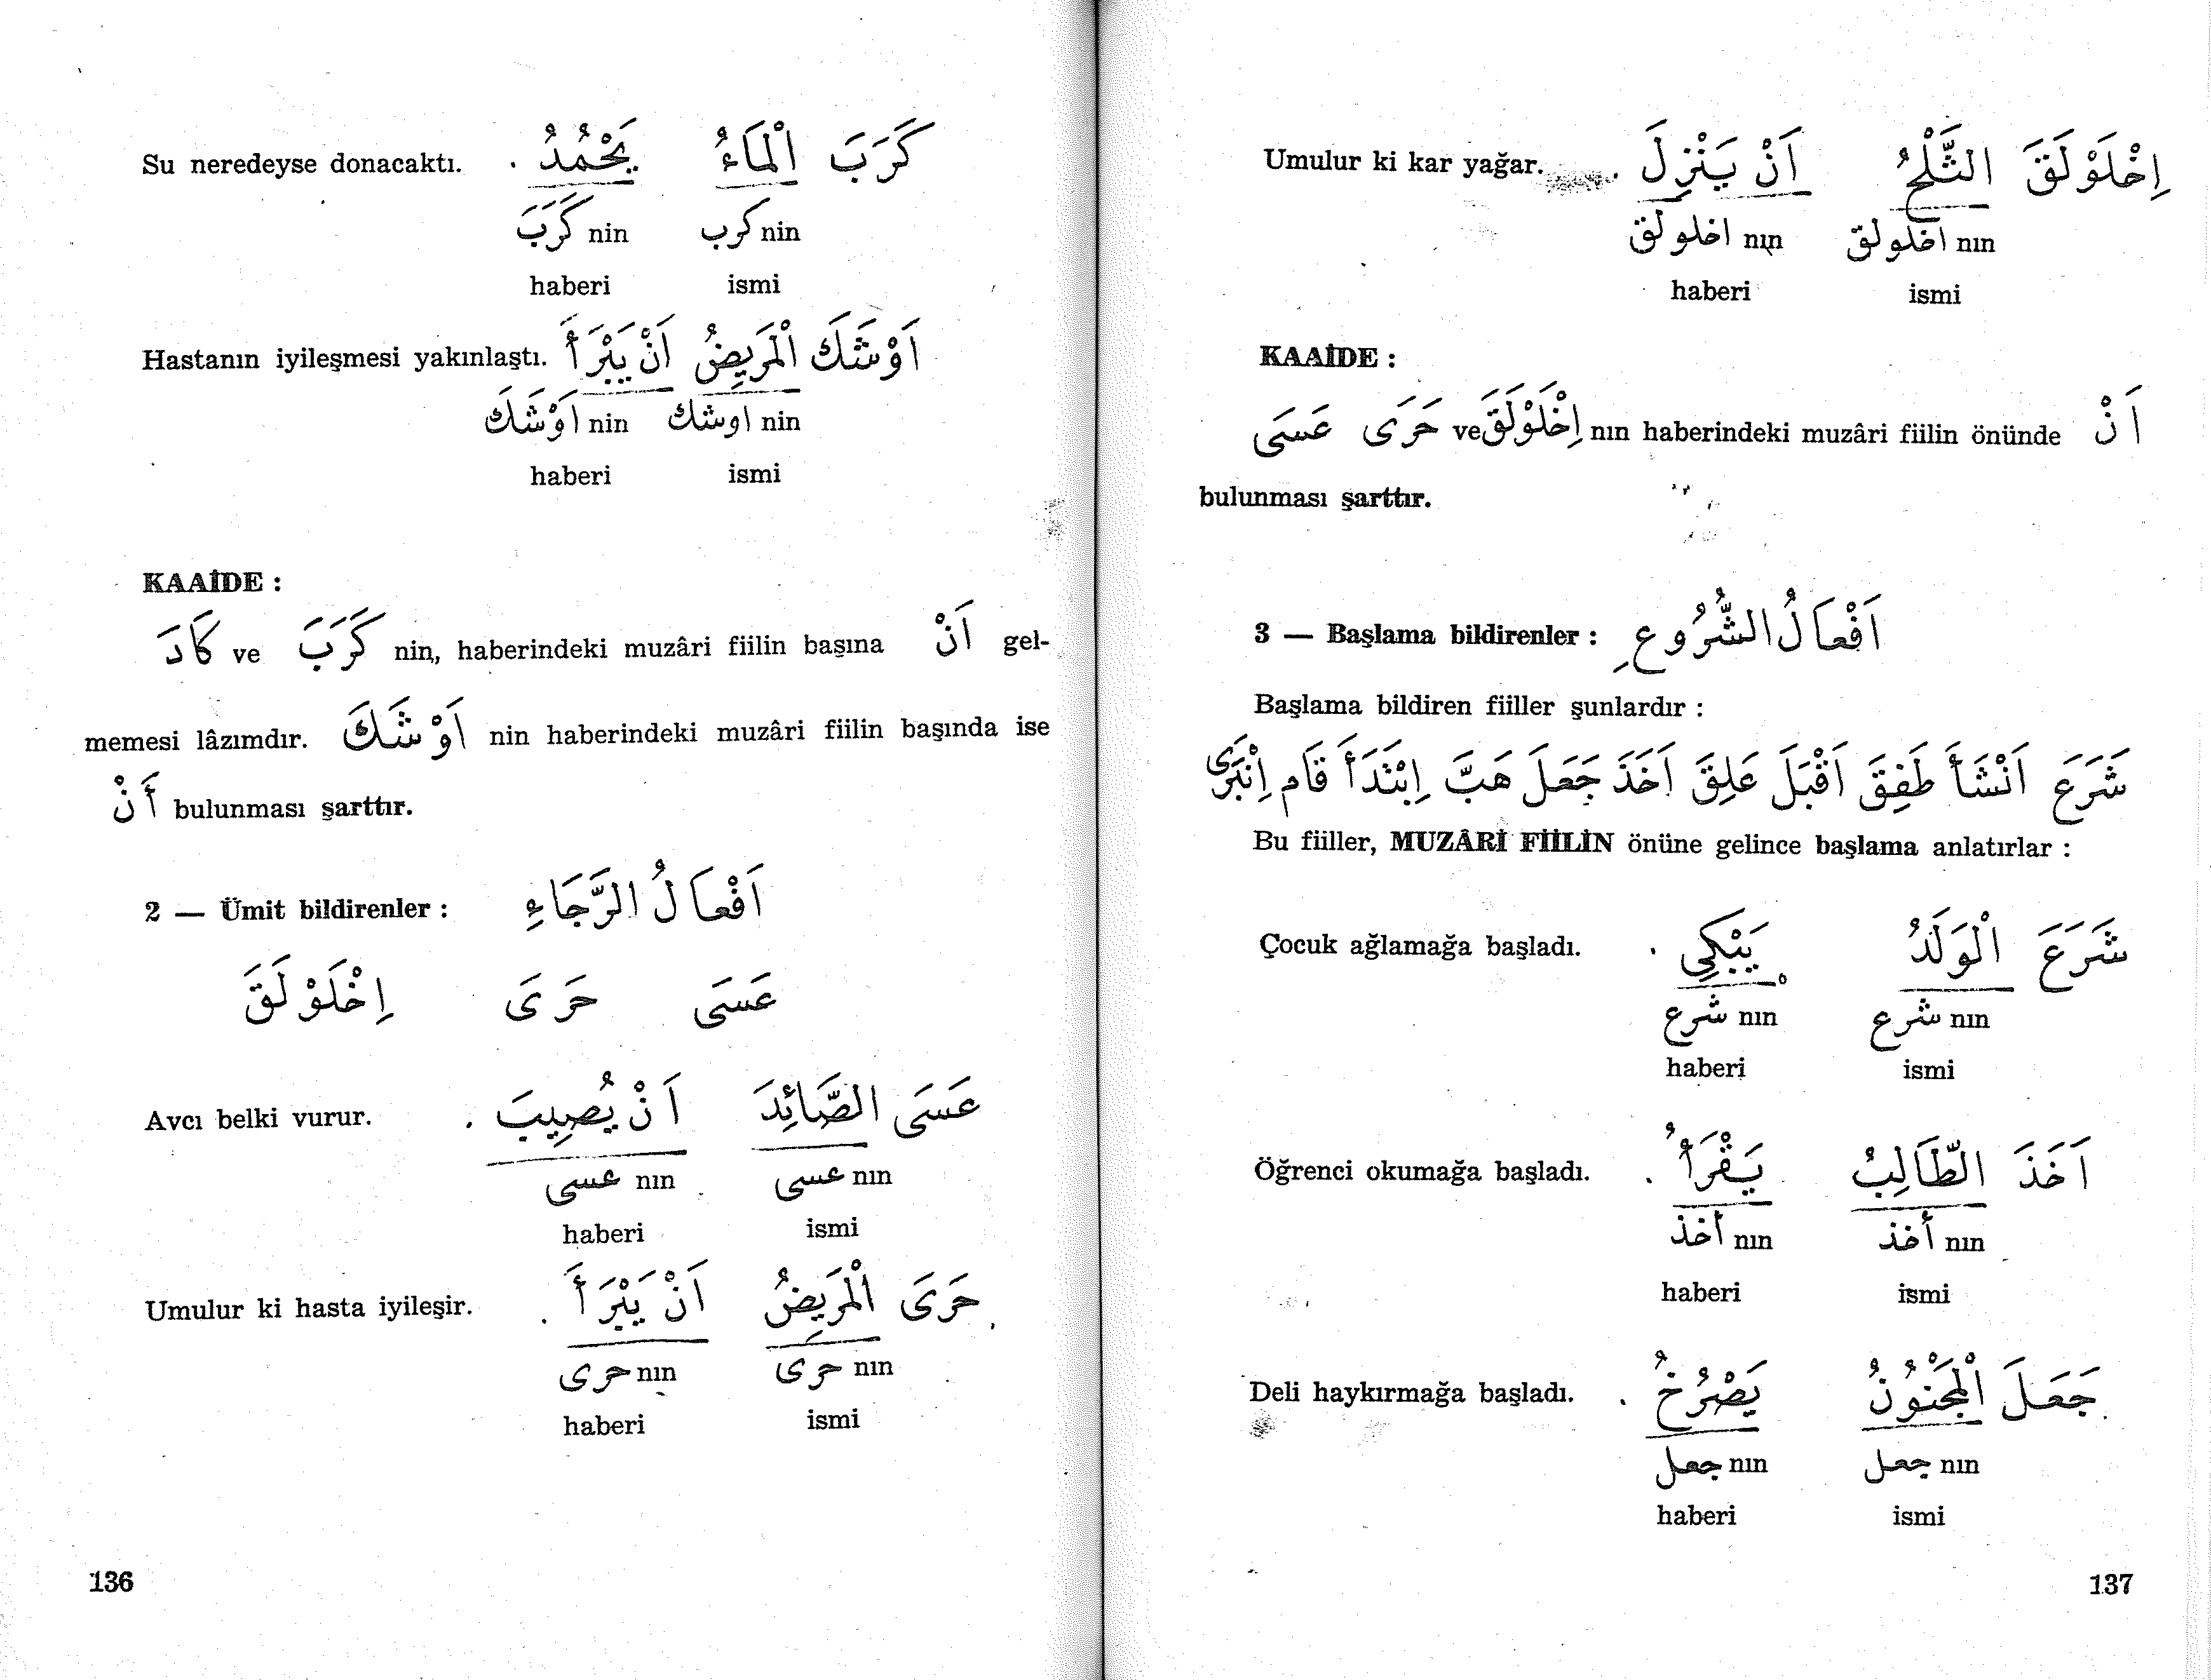 Su neredeyse donacaktı. كَرَبَ الْمَاءُ يَجْمُدُ .
كرب nin كَرَبَ nin
ismi haberi
Hastanın iyileşmesi yakınlaştı. اَوْشَكَ الْمَرِيضُ اَنْ يَبْرَأَ
اوشك nin اَوْشَكَ nin
ismi haberi
KAAİDE :
كَادَ ve كَرَبَ nin, haberindeki muzâri fiilin başına اَنْ gel-
memesi lâzımdır. اَوْشَكَ nin haberindeki muzâri fiilin başında ise
أَنْ bulunması şarttır.
2 — Ümit bildirenler : اَفْعَالُ الرَّجَاءِ
عَسَى حَرَى اِخْلَوْلَقَ
Avcı belki vurur. عَسَى الصَّائِدَ اَنْ يُصِيبَ .
عسى nın عسى nın
ismi haberi
Umulur ki hasta iyileşir. حَرَىَ الْمَرِيضُ اَنْ يَبْرَأَ .
حرى nın حرى nın
ismi haberi
136
Umulur ki kar yağar. اِخْلَوْلَقَ الثَّلْجُ اَنْ يَنْزِلَ .
اخلولق nın اخلولق nın
ismi haberi
KAAİDE :
عَسَى حَرَى ve اِخْلَوْلَقَ nın haberindeki muzâri fiilin önünde اَنْ
bulunması şarttır.
3 — Başlama bildirenler : اَفْعَالُ الشُّرُوعِ
Başlama bildiren fiiller şunlardır :
شَرَعَ اَنْشَأَ طَفِقَ اَقْبَلَ عَلِقَ اَخَذَ جَعَلَ هَبَّ اِبْتَدَأَ قَام اِنْبَرَى
Bu fiiller, MUZÂRİ FİİLİN önüne gelince başlama anlatırlar :
Çocuk ağlamağa başladı. شَرَعَ الْوَلَدُ يَبْكِي .
شرع nın شرع nın
ismi haberi
Öğrenci okumağa başladı. اَخَذَ الطَّالِبُ يَقْرَأُ .
أخذ nın أخذ nın
ismi haberi
Deli haykırmağa başladı. جَعَلَ الْمَجْنُونُ يَصْرُخُ .
جعل nın جعل nın
ismi haberi
137